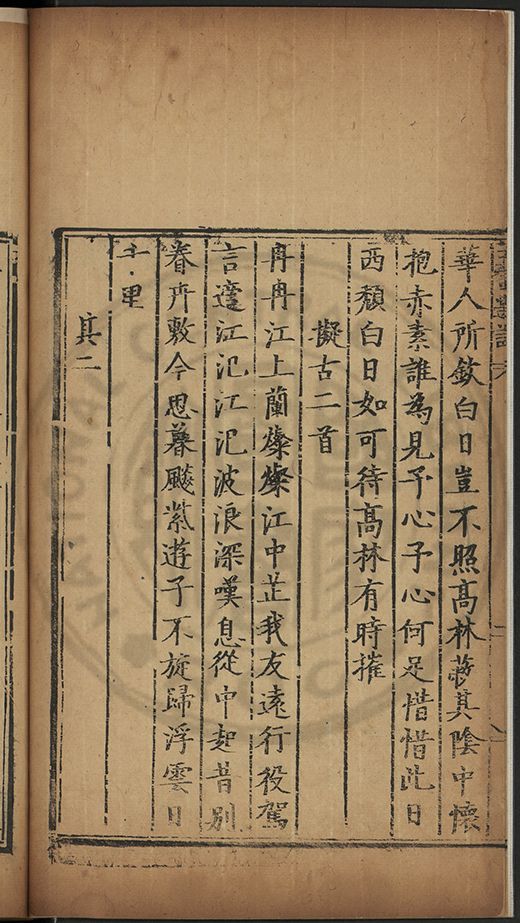 華人所欽白日豈不照高林蔽其陰中懷
抱赤素誰為見予心予心何足惜惜此日
西頹白日如可待高林有時摧
擬古二首
冉冉江上蘭燦燦江中芷我友遠行役駕
言遵江汜江汜波浪深嘆息從中起昔別
春卉敷今思暮飈紫遊子不旋歸浮雲日
千里
其二